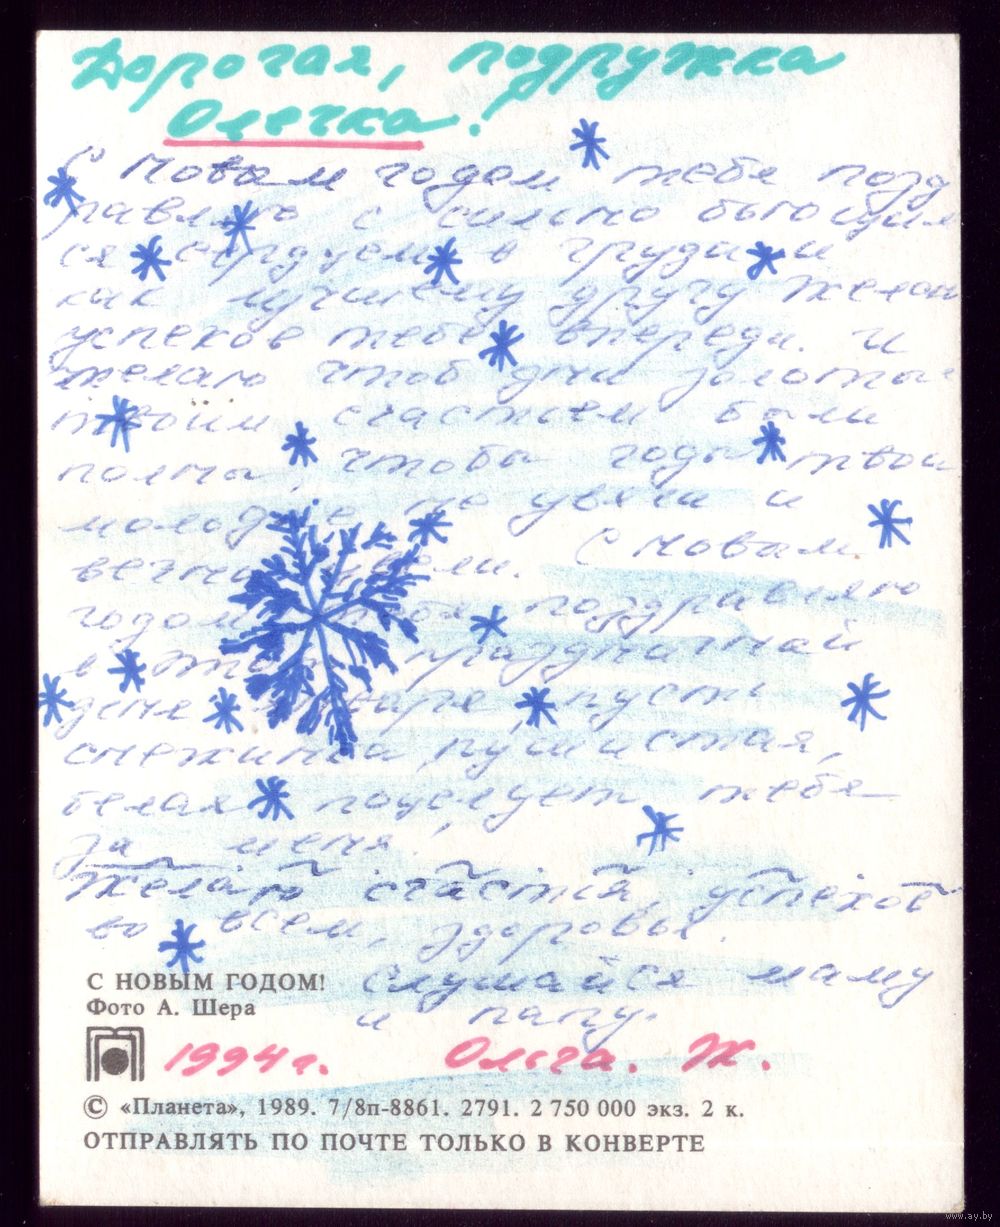 Дорогая, подружка
Олечка!
С Новым годом тебя позд
равляю с сильно бьющим
ся сердцем в груди и
как лучшему другу желаю
успехов тебе впереди. И
желаю чтоб дни золотые
твоим счастьем были
полны, чтобы годы твои
молодые не увяли и
вечно цвели. С новым
годом тебя поздравляю
в этот праздничный
день января пусть
снежинка пушистая,
белая поцелует тебя
за меня.
Желаю счастья, успехов
во всем, здоровья.
С НОВЫМ ГОДОМ! Слушайся маму
Фото А. Шера и папу.
1994 г. Ольга. Ж.
© «Планета», 1989. 7/8п-8861. 2791. 2 750 000 экз. 2 к.
ОТПРАВЛЯТЬ ПО ПОЧТЕ ТОЛЬКО В КОНВЕРТЕ
www.ay.by